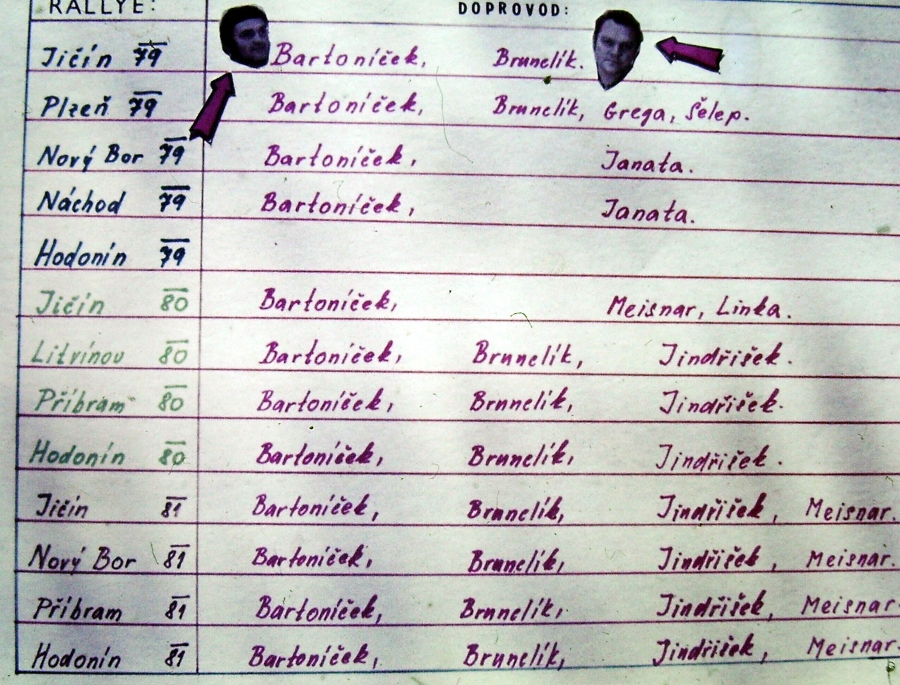 RALLYE: DOPROVOD:
Jičín 79 Bartoníček, Brunclík.
Plzeň 79 Bartoníček, Brunclík, Grega, Šelep.
Nový Bor 79 Bartoníček, Janata.
Náchod 79 Bartoníček, Janata.
Hodonín 79
Jičín 80 Bartoníček, Meisnar, Linka.
Litvínov 80 Bartoníček, Brunclík, Jindřišek.
Příbram 80 Bartoníček, Brunclík, Jindřišek.
Hodonín 80 Bartoníček, Brunclík, Jindřišek.
Jičín 81 Bartoníček, Brunclík, Jindřišek, Meisnar.
Nový Bor 81 Bartoníček, Brunclík, Jindřišek, Meisnar.
Příbram 81 Bartoníček, Brunclík, Jindřišek, Meisnar.
Hodonín 81 Bartoníček, Brunclík, Jindřišek, Meisnar.